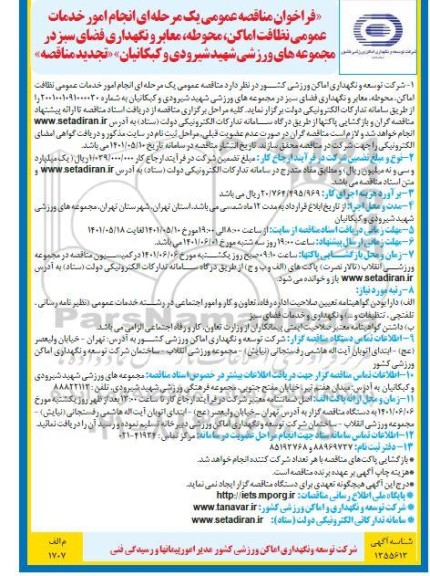 «فراخوان مناقصه عمومی یک مرحله‌ای انجام امور خدمات
عمومی نظافت اماکن، محوطه، معابر و نگهداری فضای سبز در
مجموعه های ورزشی شهید شیرودی و کبکانیان» «تجدید مناقصه»
شرکت توسعه و نگهداری اماکن ورزشی کشور
۱- شرکت توسعه و نگهداری اماکن ورزشی کشور در نظر دارد مناقصه عمومی یک مرحله ای انجام امور خدمات عمومی نظافت
اماکن، محوطه، معابر و نگهداری فضای سبز در مجموعه های ورزشی شهید شیرودی و کبکانیان به شماره ۲۰۰۱۰۰۱۰۹۱۰۰۰۰۲۰ را
از طریق سامانه تدارکات الکترونیکی دولت برگزار نماید. کلیه مراحل برگزاری مناقصه از دریافت اسناد مناقصه تا ارائه پیشنهاد
مناقصه گران و بازگشایی پاکتها از طریق درگاه سامانه تدارکات الکترونیکی دولت (ستاد) به آدرس www.setadiran.ir
انجام خواهد شد و لازم است مناقصه گران در صورت عدم عضویت قبلی، مراحل ثبت نام در سایت مذکور و دریافت گواهی امضای
الکترونیکی را جهت شرکت در مناقصه محقق سازند. تاریخ انتشار مناقصه در سامانه تاریخ ۱۴۰۱/۰۵/۱۰ می باشد.
۲- نوع و مبلغ تضمین شرکت در فرآیند ارجاع کار: مبلغ تضمین شرکت در فرآیند ارجاع کار ۱/۰۳۹/۰۰۰/۰۰۰ ریال (یک میلیارد
و سی و نه میلیون ریال) و مطابق مفاد مندرج در سامانه تدارکات الکترونیکی دولت (ستاد) به آدرس www.setadiran.ir و
متن اسناد مناقصه می باشد.
۳- برآورد هزینه اجرای کار: ۲۰/۷۶۴/۴۹۵/۹۶۹ ریال می باشد
۴- مدت و محل اجرا: از تاریخ ابلاغ قرارداد به مدت ۱۲ ماه شمسی می باشد. استان تهران، شهرستان تهران، مجموعه های ورزشی
شهید شیرودی و کبکانیان
۵- مهلت زمانی دریافت اسناد مناقصه از سایت: از ساعت ۸:۰۰ الی ۱۹:۰۰ مورخ ۱۴۰۱/۰۵/۱۰ لغایت ۱۴۰۱/۰۵/۱۸
۶- مهلت زمانی ارسال پیشنهاد: ساعت ۱۹:۰۰ روز سه شنبه مورخ ۱۴۰۱/۰۶/۰۱ می باشد.
۷- زمان و محل بازگشایی پاکتها: ساعت ۹:۱۰ صبح روز یکشنبه مورخ ۱۴۰۱/۰۶/۰۶ در کمیسیون مناقصه در مجموعه
ورزشی انقلاب (تالار نصرت) پاکت های (الف و ب و ج) از طریق درگاه سامانه تدارکات الکترونیکی دولت (ستاد) به آدرس
www.setadiran.ir باز و خوانده می شود.
۸- رتبه مورد نیاز:
الف) دارا بودن گواهینامه تعیین صلاحیت اداره رفاه، تعاون و کار و امور اجتماعی در رشته خدمات عمومی (نظیر نامه رسانی،
تلفچی، تنظیفات و ...) و نگهداری و خدمات فضای سبز
ب) داشتن گواهینامه معتبر صلاحیت ایمنی پیمانکاران از وزارت تعاون، کار و رفاه اجتماعی الزامی می باشد.
۹- اطلاعات تماس دستگاه مناقصه گزار: شرکت توسعه و نگهداری اماکن ورزشی کشور به آدرس: تهران - خیابان ولیعصر
(عج) - ابتدای اتوبان آیت اله هاشمی رفسنجانی (نیایش) - مجموعه ورزشی انقلاب - ساختمان شرکت توسعه و نگهداری اماکن
ورزشی کشور
۱۰- اطلاعات تماس مناقصه گزار جهت دریافت اطلاعات بیشتر در خصوص اسناد مناقصه: مجموعه های ورزشی شهید شیرودی
و کبکانیان به آدرس: میدان هفتم تیر، خیابان مفتح جنوبی، مجموعه فرهنگی ورزشی شهید شیرودی، تلفن: ۸۸۸۲۲۱۱۳
۱۱- زمان و محل ارائه پاکت الف: اصل ضمانتنامه معتبر شرکت در فرآیند ارجاع کار تا ساعت ۱۳:۰۰ بعد از ظهر روز یکشنبه مورخ
۱۴۰۱/۰۶/۰۶ به دستگاه مناقصه گزار به آدرس تهران - خیابان ولیعصر (عج) - ابتدای اتوبان آیت اله هاشمی رفسنجانی (نیایش) -
مجموعه ورزشی انقلاب - ساختمان شرکت توسعه و نگهداری اماکن ورزشی دبیرخانه تسلیم نموده و رسید آن را دریافت نمائید.
۱۲- اطلاعات تماس سامانه ستاد جهت انجام مراحل عضویت در سامانه: مرکز تماس: ۴۱۹۳۴-۰۲۱
۱۳- دفتر ثبت نام: ۸۸۹۶۹۷۳۷ و ۸۵۱۹۳۷۶۸
* بازگشایی پاکت های مناقصه با هر تعداد شرکت کننده انجام خواهد شد.
* هزینه چاپ آگهی بر عهده برنده مناقصه است.
* درج این آگهی هیچگونه تعهدی برای دستگاه مناقصه گزار ایجاد نمی نماید.
* پایگاه ملی اطلاع رسانی مناقصات: http://iets.mporg.ir
* شرکت توسعه و نگهداری و اماکن ورزشی کشور: www.tanavar.ir
* سامانه تدارکاتی الکترونیکی دولت (ستاد): www.setadiran.ir
شناسه آگهی
۱۳۵۵۶۱۳
شرکت توسعه و نگهداری اماکن ورزشی کشور مدیر امور پیمانها و رسیدگی فنی
م الف
۱۷۰۷